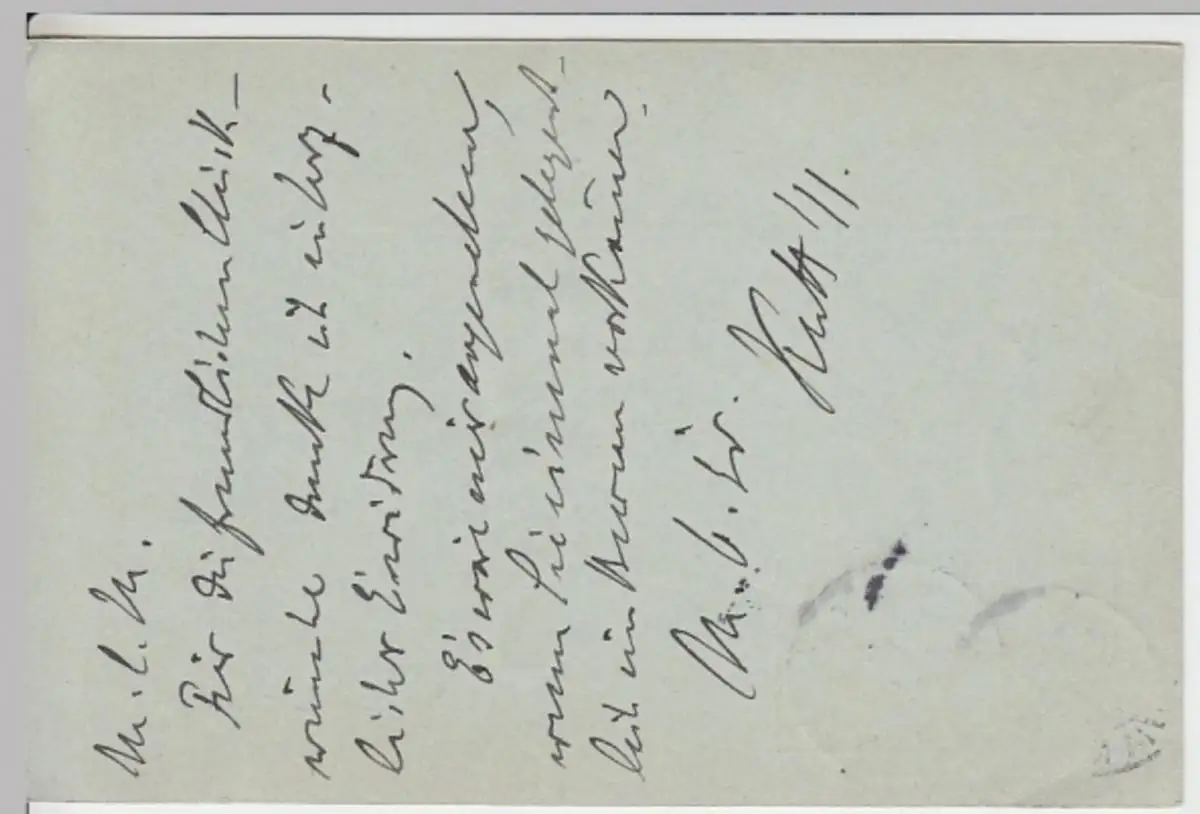 M. l. M.
Für die freundlichen Glück-
wünsche danke ich in herz-
licher Erwidrung.
Es wäre mir angenehm,
wenn Sie einmal gelegent-
lich im Bureau vorkämen.
M. b. Gr.